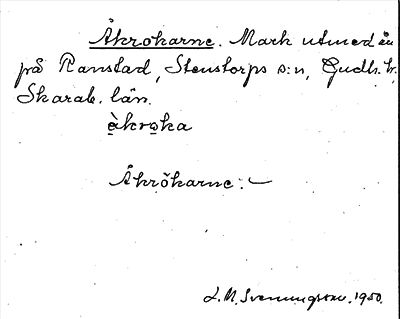 Åkrokarne. Mark utmed ån
på Ranstad, Stenstorps s:n, Gudh. hr.
Skarab. län.
àkroka
Åkrŏkarne: ~
J. M. Svenningson. 1950.